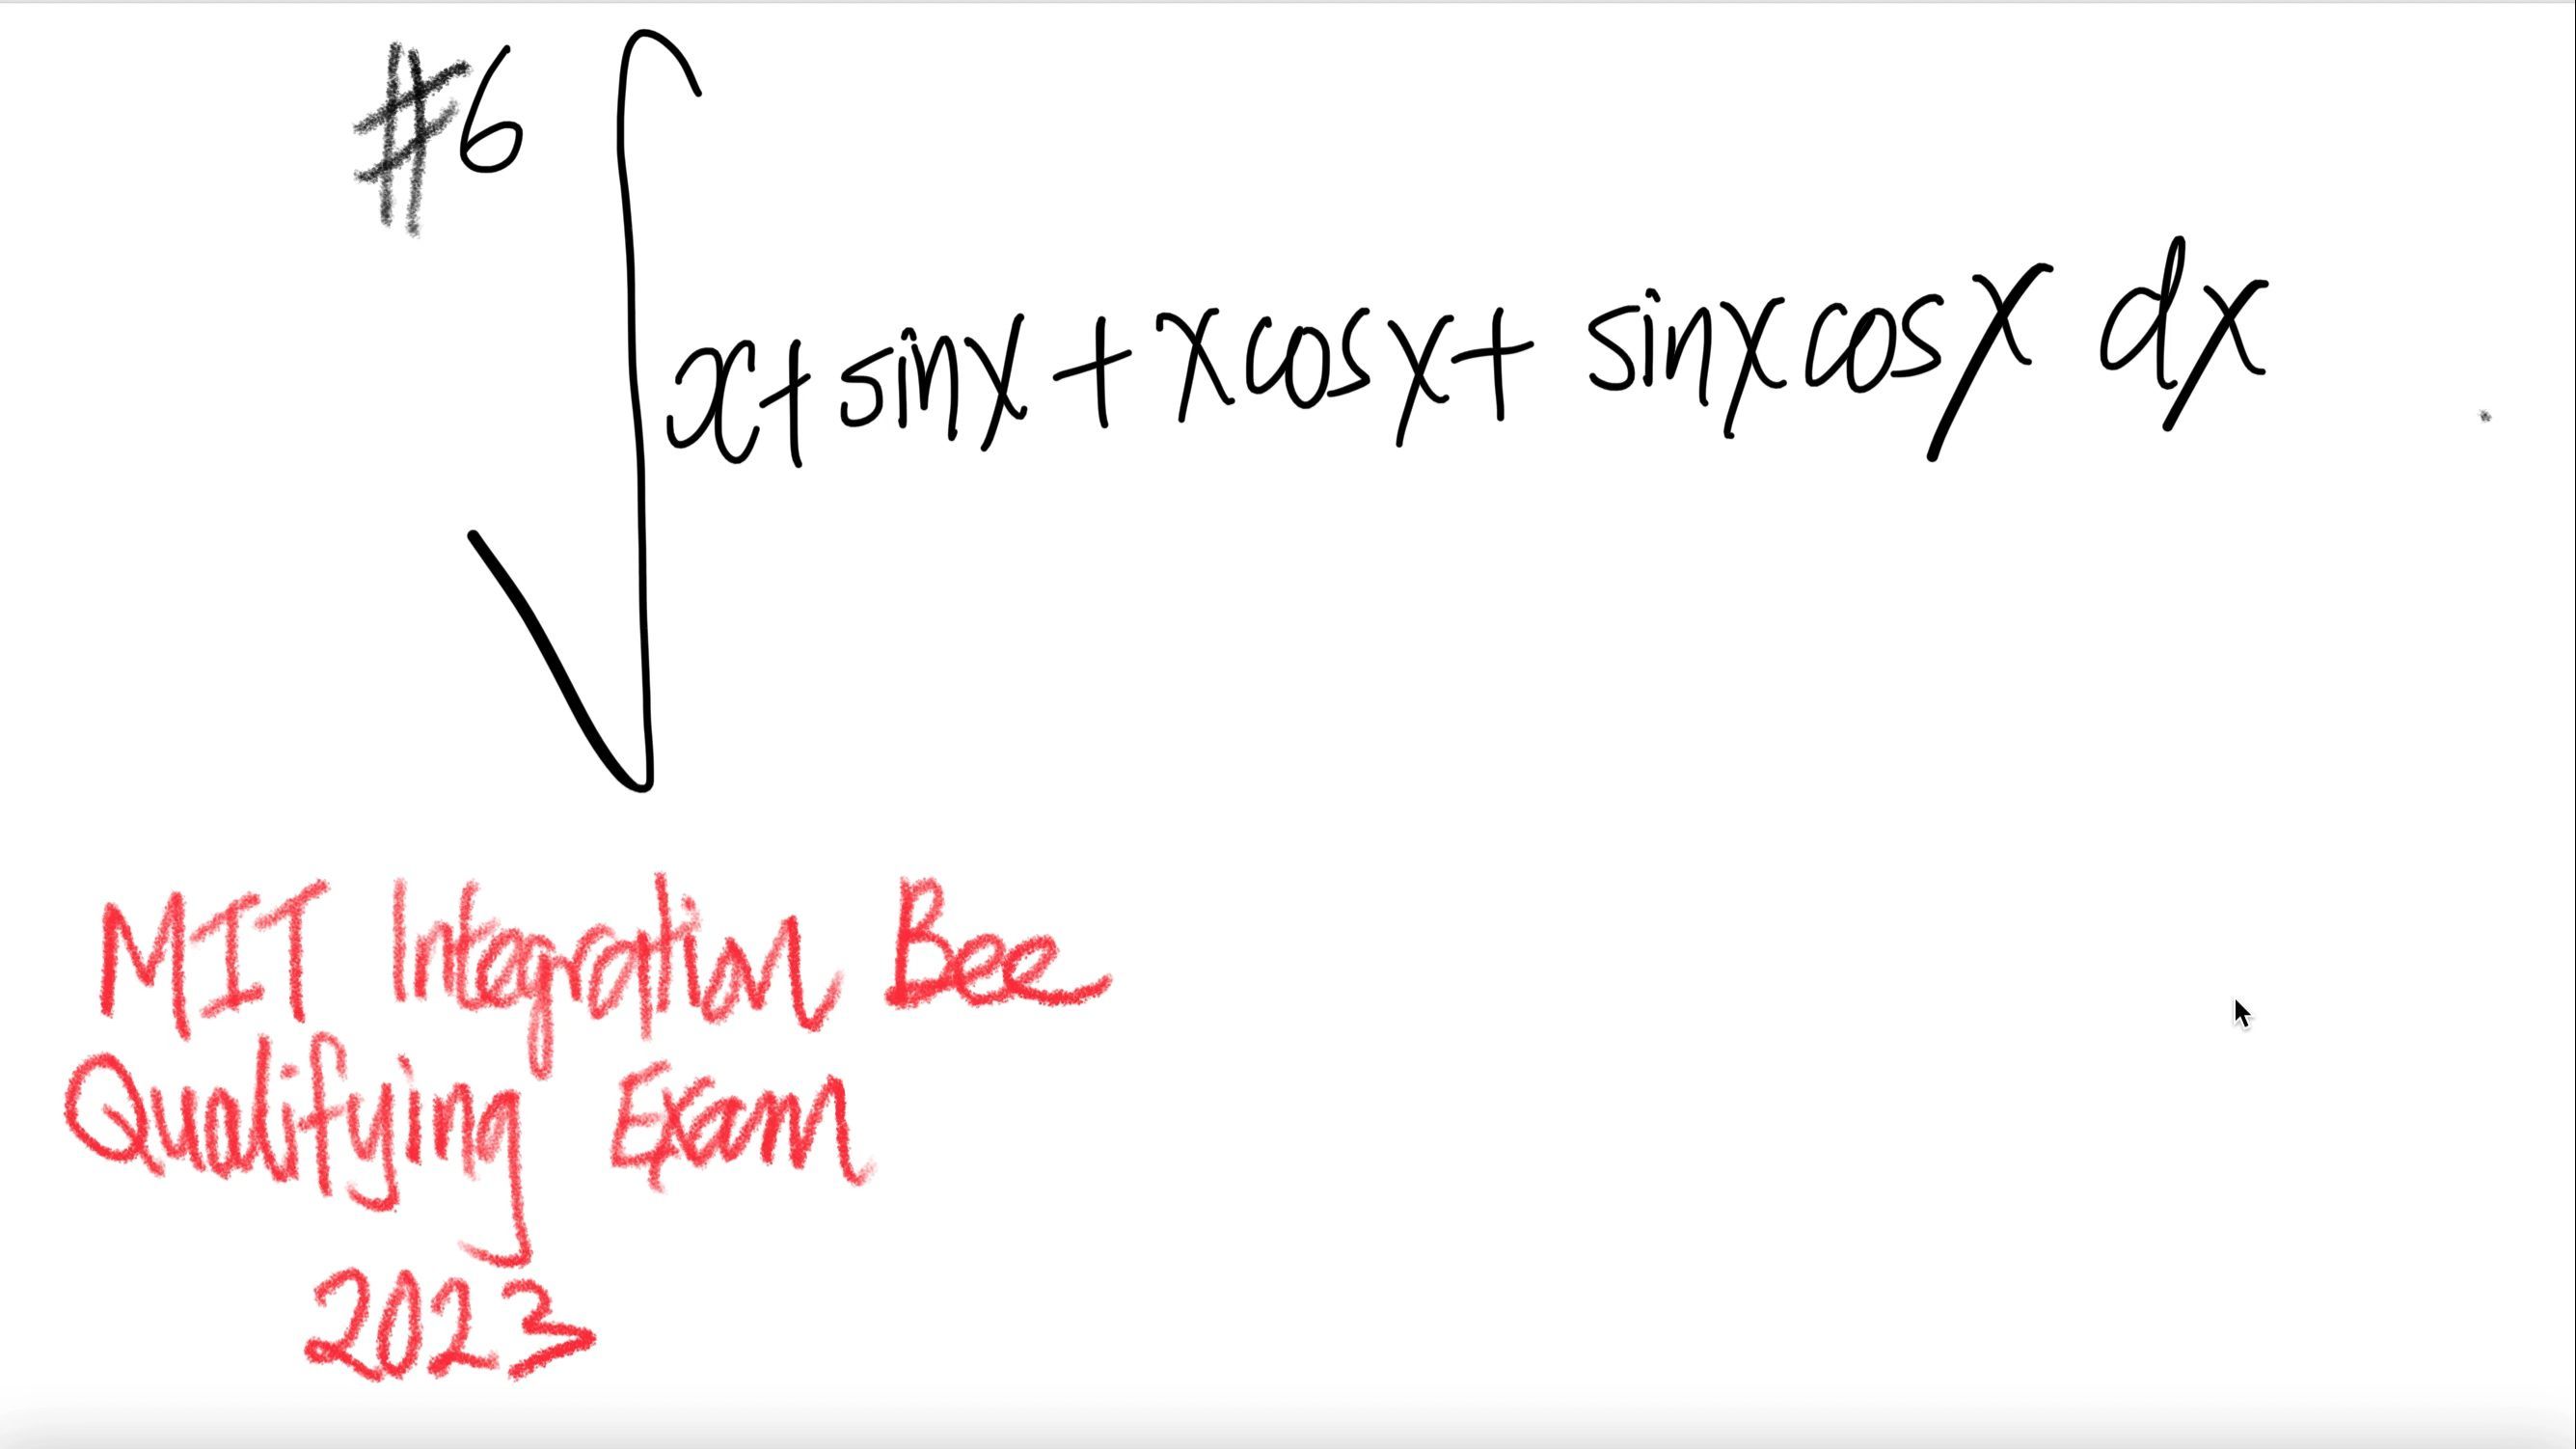 #6 ∫ x + sinx + xcosx + sinxcosx dx
MIT Integration Bee
Qualifying Exam
2023